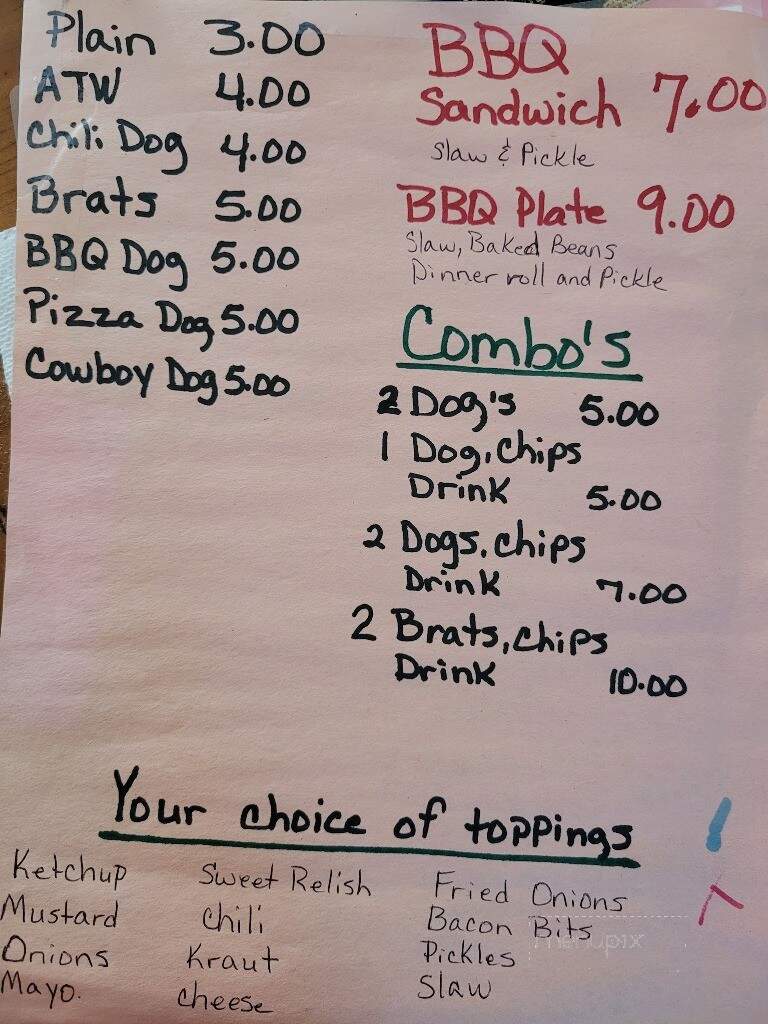 Plain 3.00
ATW 4.00
Chili Dog 4.00
Brats 5.00
BBQ Dog 5.00
Pizza Dog 5.00
Cowboy Dog 5.00
BBQ
Sandwich 7.00
Slaw & Pickle
BBQ Plate 9.00
Slaw, Baked Beans
Dinner roll and Pickle
Combo's
2 Dog's 5.00
1 Dog, chips
Drink 5.00
2 Dogs, chips
Drink 7.00
2 Brats, chips
Drink 10.00
Your choice of toppings
Ketchup Sweet Relish Fried Onions
Mustard Chili Bacon Bits
Onions Kraut Pickles
Mayo. cheese Slaw
menupix